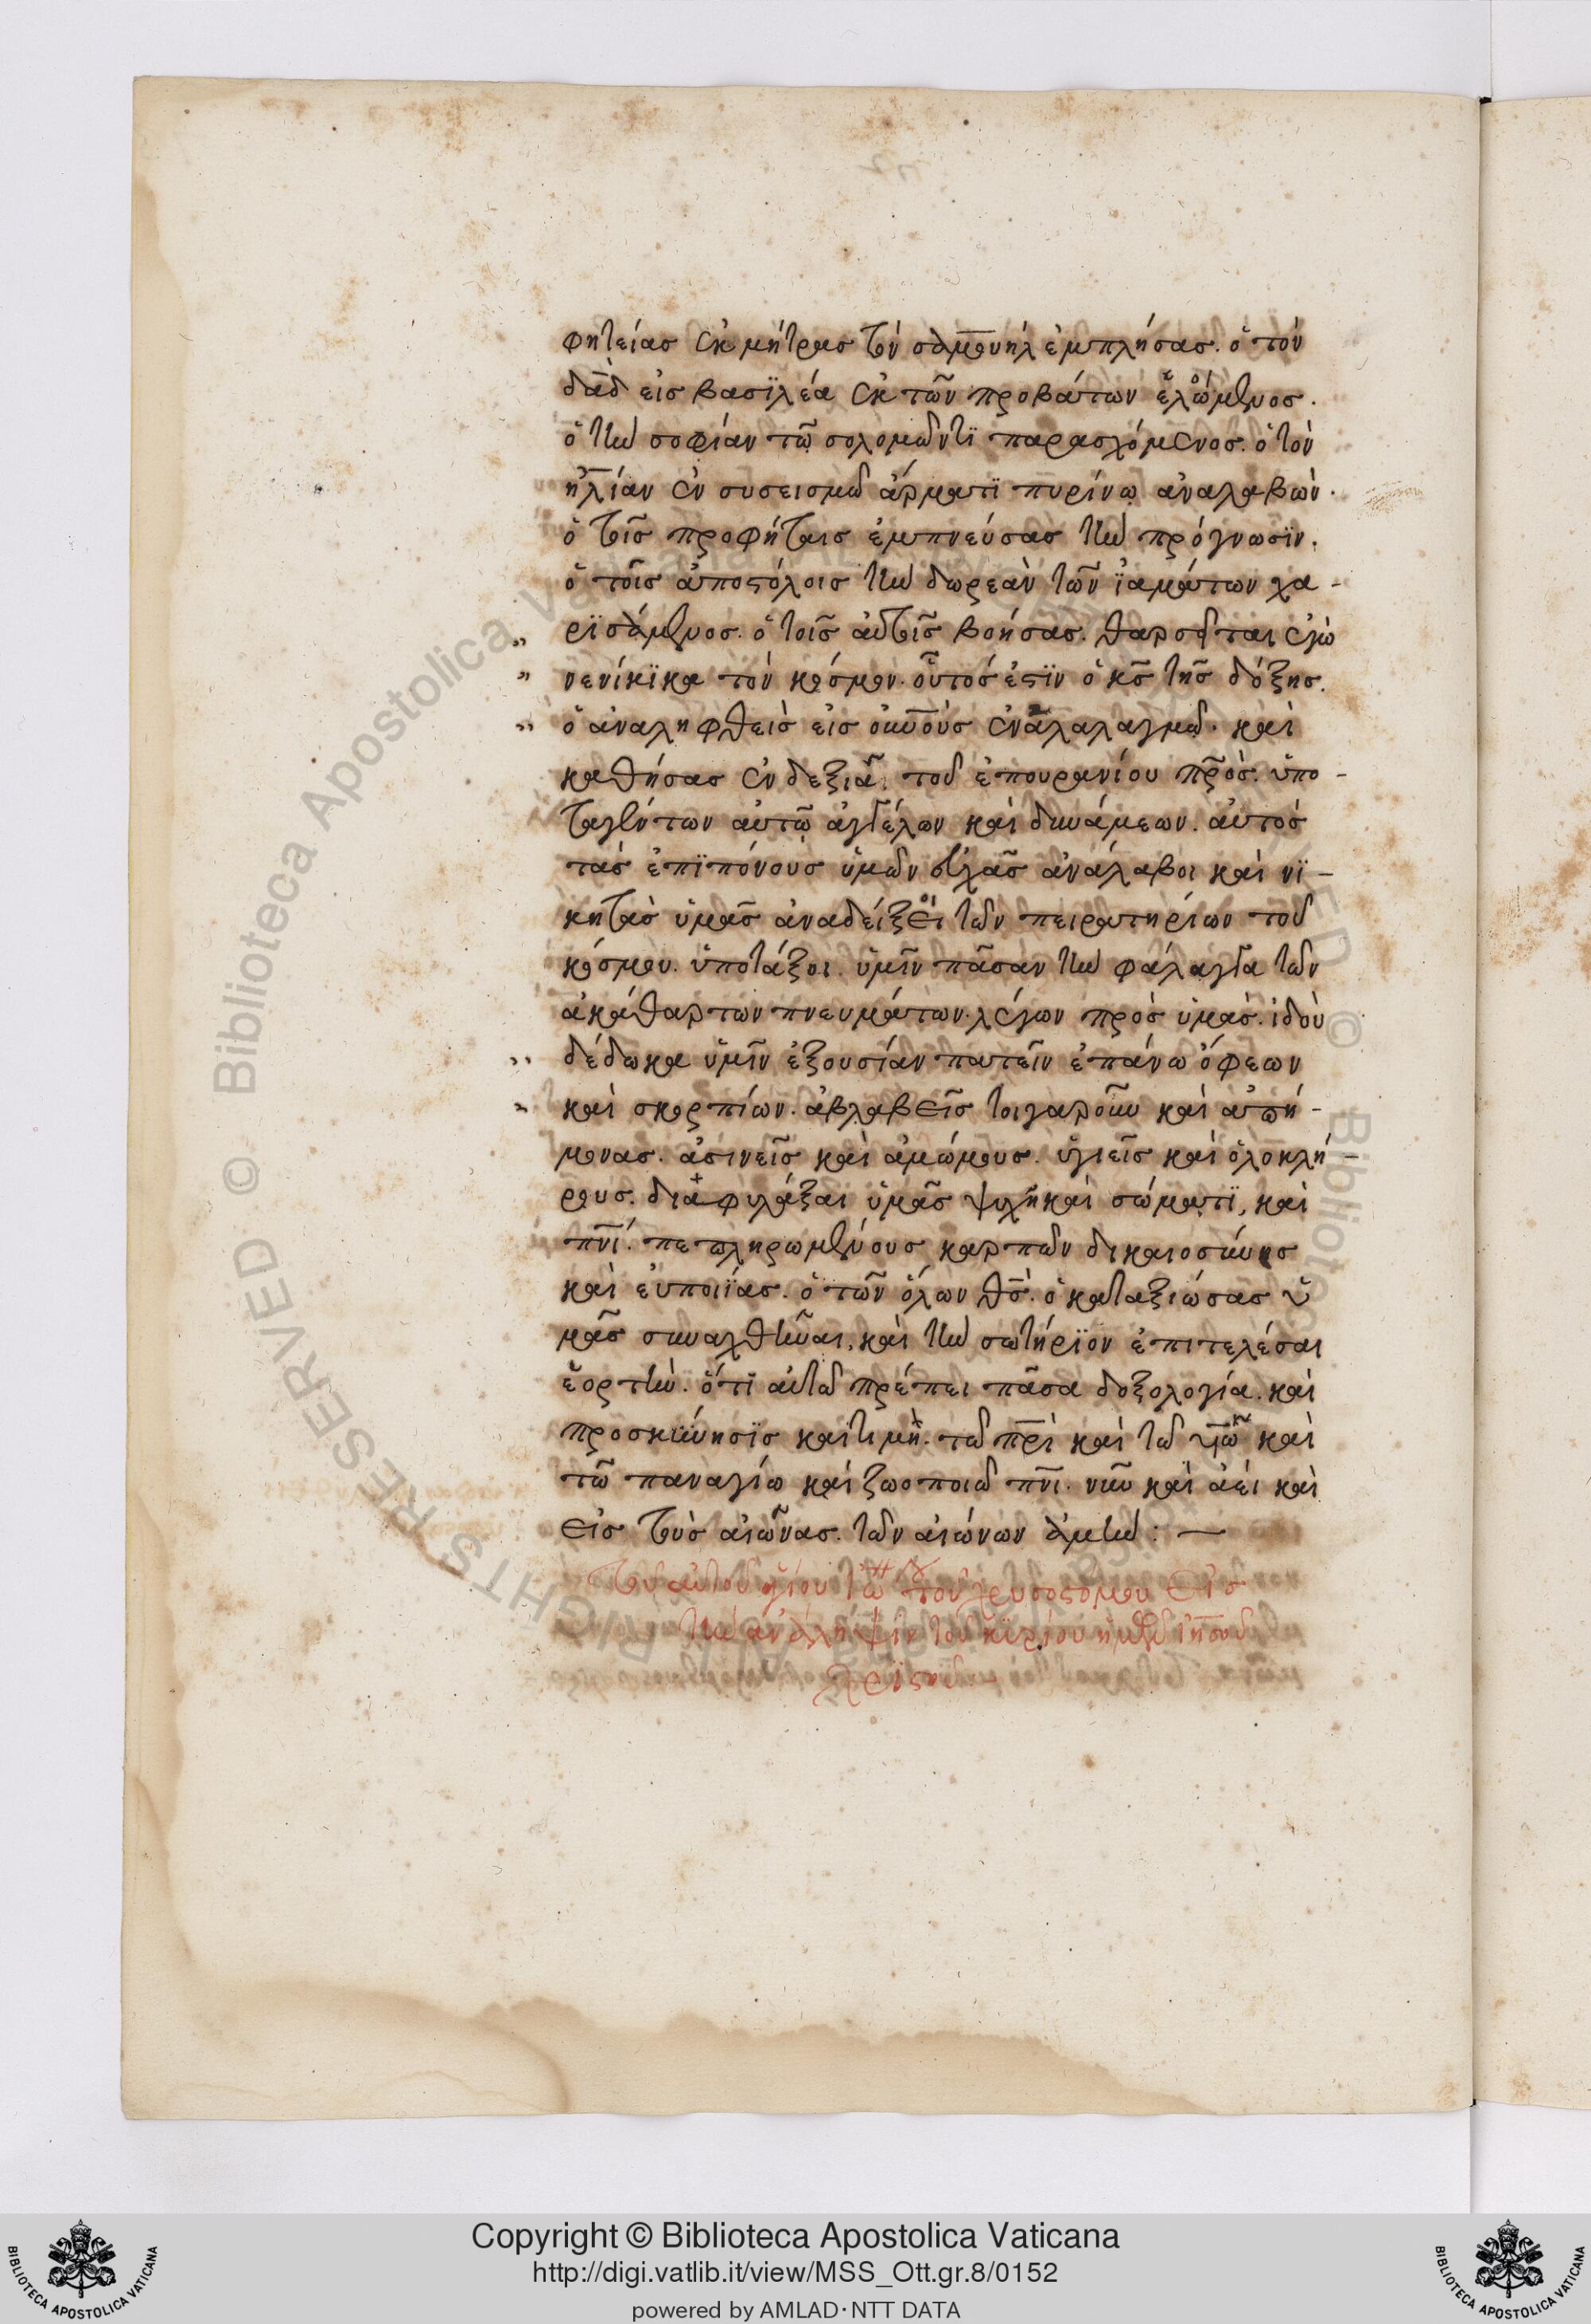 φητείας ἐκ μήτρας τὸν σαμουὴλ ἐμπλήσας. ὁ τὸν
δᾱδ εἰς βασϊλέα ἐκ τῶν προβάτων ἑλώμενος.
ὁ τὴν σοφίαν τῷ σολομῶντϊ παρασχόμενος. ὁ τὸν
ἠλίαν ἐν συσεισμῷ ἅρματϊ πυρίνῳ ἀναλαβών.
ὁ τοῖς προφήταις ἐμπνεύσας τὴν πρόγνωσϊν.
ὁ τοῖς ἀποστόλοις τὴν δωρεὰν τῶν ἰαμάτων χα-
ρϊσάμενος. ὁ τοῖς αὐτοῖς βοήσας. θαρσεῖται ἐγὼ
νενίκϊκα τὸν κόσμον. οὗτός ἐστϊν ὁ κ̅ς̅ τῆς δόξης.
ὁ ἀναληφθεὶς εἰς ο̅υ̅ν̅ο̅ὺς ἐν ἀλαλαγμῷ. καὶ
καθήσας ἐν δεξιᾷ τοῦ ἐπουρανίου π̅ρ̅ὸς. ὑπο-
ταγέντων αὐτῷ ἀγγέλων καὶ δυνάμεων. αὐτὸς
τὰς ἐπϊπόνους ὑμῶν εὐχὰς ἀνάλαβοι καὶ νϊ-
κητὰς ὑμᾶς ἀναδείξει τῶν πειρατηρίων τοῦ
κόσμου. ὑποτάξοι ὑμῖν πᾶσαν τὴν φάλαγγα τῶν
ἀκαθάρτων πνευμάτων. λέγων πρὸς ὑμᾶς. ἰδοὺ
δέδωκα ὑμῖν ἐξουσίαν πατεῖν ἐπάνω ὄφεων
καὶ σκορπίων. ἀβλαβεῖς τοιγαροῦν καὶ ἀπή-
μονας. ἀσινεῖς καὶ ἀμώμους. ὑγιεῖς καὶ ὁλοκλή-
ρους. διαφυλάξαι ὑμᾶς ψυχῇ καὶ σώματϊ, καὶ
π̅ν̅ί. πεπληρωμένους καρπῶν δικαιοσύνης
καὶ εὐποιΐας. ὁ τῶν ὅλων θ̅ς̅. ὁ καταξιώσας ὑ
μᾶς συναχθῆναι, καὶ τὴν σωτήρϊον ἐπιτελέσαι
ἑορτήν. ὅτϊ αὐτῷ πρέπει πᾶσα δοξολογία. καὶ
προσκύνησϊς καὶ τιμὴ. τῷ π̅ρ̅ὶ καὶ τῷ υ̅ἱῷ καὶ
τῷ παναγίῳ καὶ ζωοποιῷ π̅ν̅ι. νῦν καὶ ἀεὶ καὶ
εἰς τοὺς αἰῶνας. τῶν αἰώνων ἀμήν : —
τοῦ αὐτοῦ ἁγίου ἰω̅ τοῦ χρυσοστόμου εἰς
τὴν ἀνάληψιν τοῦ κυρίου ἡμῶν ἰησοῦ
χρϊστοῦ
Copyright © Biblioteca Apostolica Vaticana
http://digi.vatlib.it/view/MSS_Ott.gr.8/0152
powered by AMLAD·NTT DATA